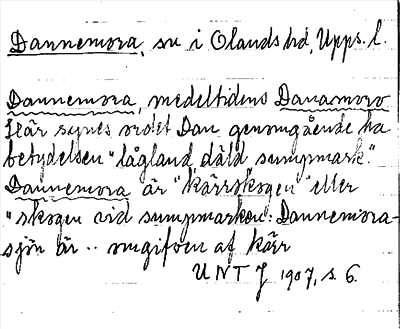 Dannemora, sn i Olands hd, Upps. l.
Dannemora, medeltidens Danamoro
Här synes ordet Dan genomgående ha
betydelsen "lågland, däld sumpmark".
Dannemora är "kärrskogen" eller
"skogen vid sumpmarken. Dannemora-
sjön är .. omgifven af kärr
UNT J 1907, s. 6.